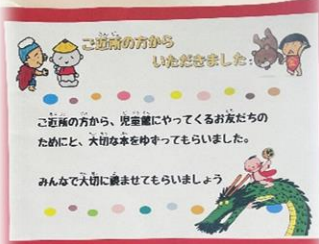 ご近所の方から
いただきました
ご近所の方から、児童館にやってくるお友だちの
ためにと、大切な本をゆずってもらいました。
みんなで大切に読ませてもらいましょう